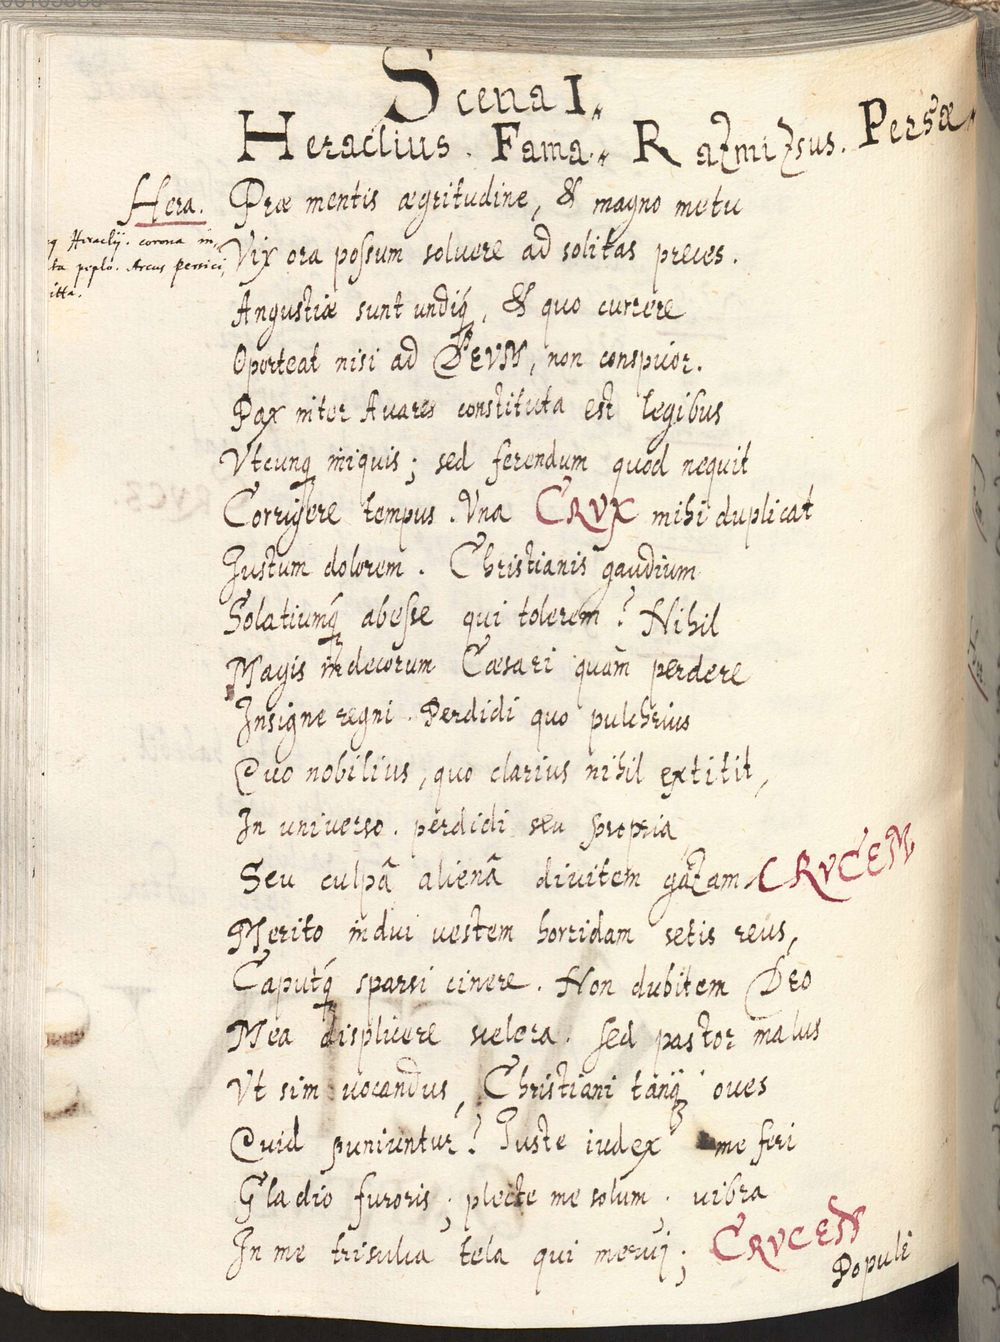 Scena I.
Heraclius. Fama. Razmizsus. Persæ.
Hera.
Heraclij. corona in,
peplo. Arcus Persici,
Præ mentis ægritudine, & magno metu
Vix ora possum soluere ad solitas preces.
Angustiæ sunt undiq́, & quo currere
Oporteat nisi ad DEVM, non conspicor.
Pax inter Auares constituta est legibus
Vtcunq iniquis; sed ferendum quod nequit
Corrigere tempus. Vna CRVX mihi duplicat
Iustum dolorem. Christianis gaudium
Solatiumq́ abesse qui tolerem? Nihil
Magis indecorum Cæsari quàm perdere
Insigne regni. Perdidi quo pulchrius
Quo nobilius, quo clarius nihil extitit,
In universo. perdidi seu propria
Seu culpâ alienâ divitem gazam CRVCEM
Merito indui vestem horridam setis reus,
Caputq́ sparsi cinere. Non dubitem DEO
Mea displicere scelera. sed pastor malus
Vt sim vocandus, Christiani tanq oves
Quid puniuntur? Iuste iudex me feri
Gladio furoris; plecte me solum, vibra
In me trisulca tela qui meruj; CRVCEM
Populi